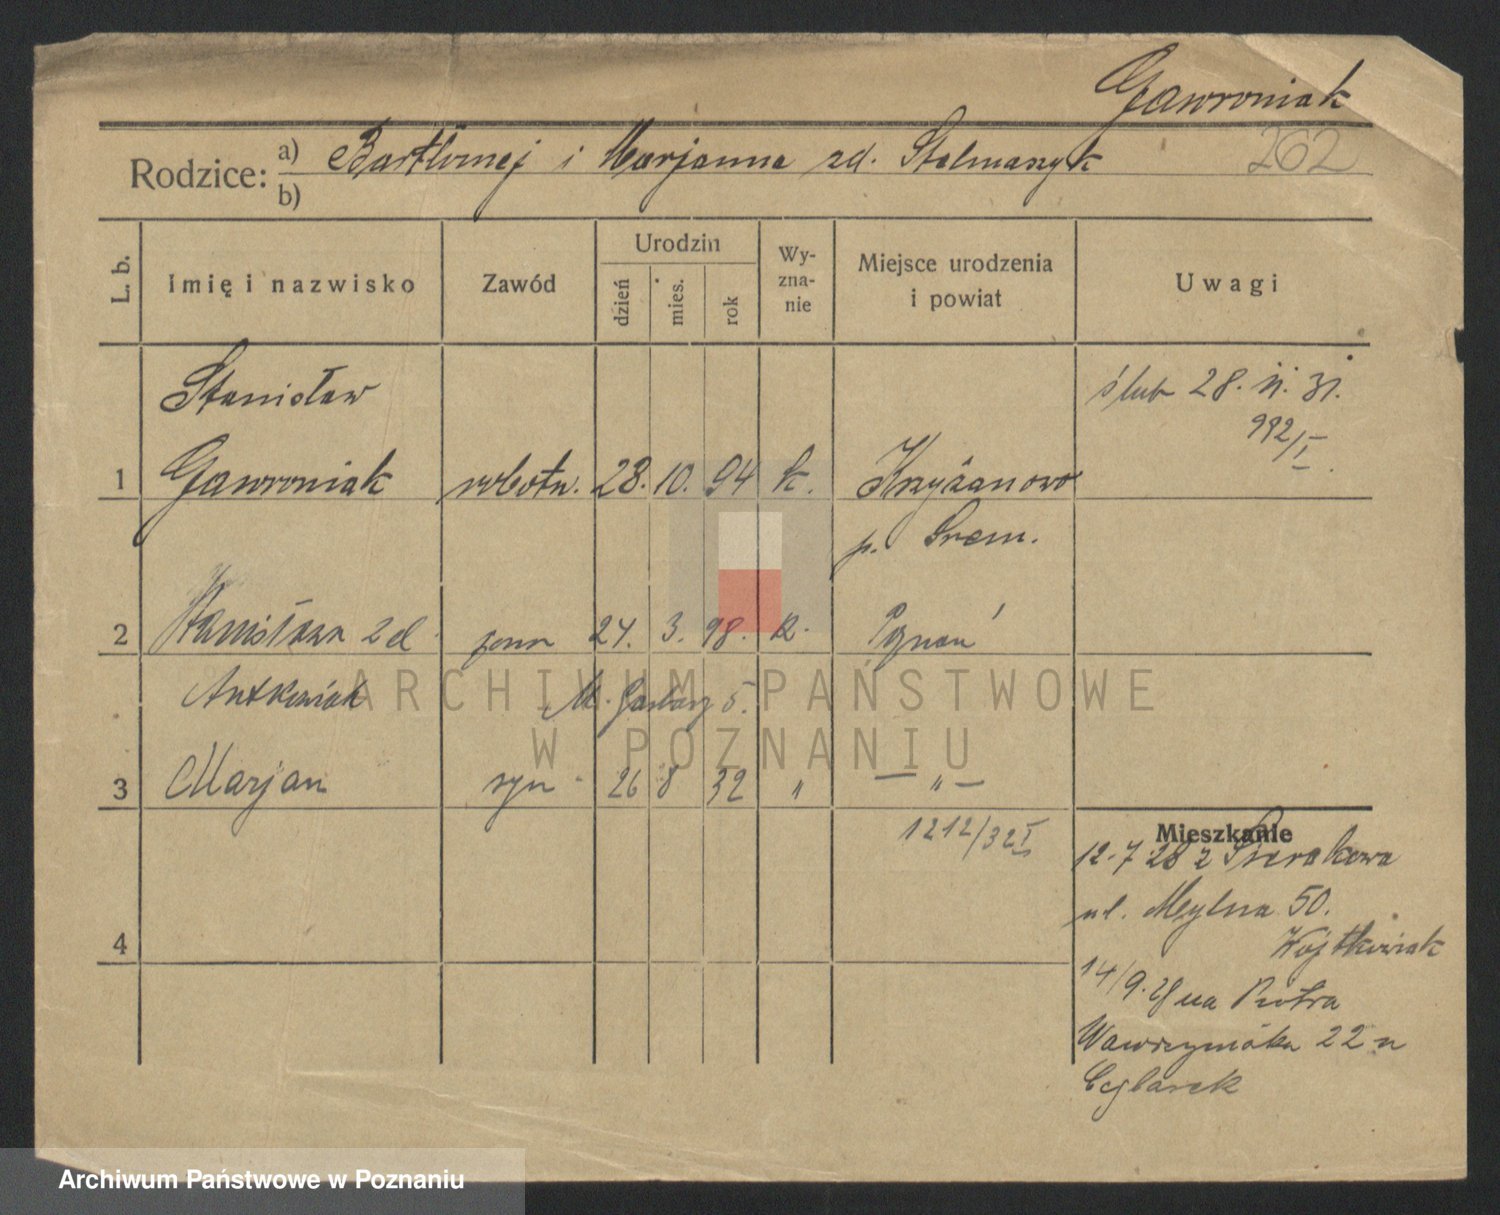 Gawroniak
262
Rodzice: a) Bartłomej i Marjanna zd. Stelmaszyk
b)
L. b.
Imię i nazwisko
Zawód
Urodzin
dzień
mies.
rok
Wy-
zna-
nie
Miejsce urodzenia
i powiat
Uwagi
Stanisław
ślub 28. XI. 31.
992/I.
1 Gawroniak robotn. 28. 10. 94 k. Krzyżanowo
p. Śrem.
2 Stanisława zd. żona 24. 3. 98. k. Poznań
Antkowiak M. Garbary 5.
3 Marjan syn 26 8 32 " — " —
1212/32 I
Mieszkanie
12.7.28 z Sierakowa
ul. Młylna 50.
Wojtkowiak
4
14/9. 28 na Piotra
Wawrzyniaka 22 u
Ceglarek
ARCHIWUM PAŃSTWOWE
W POZNANIU
Archiwum Państwowe w Poznaniu